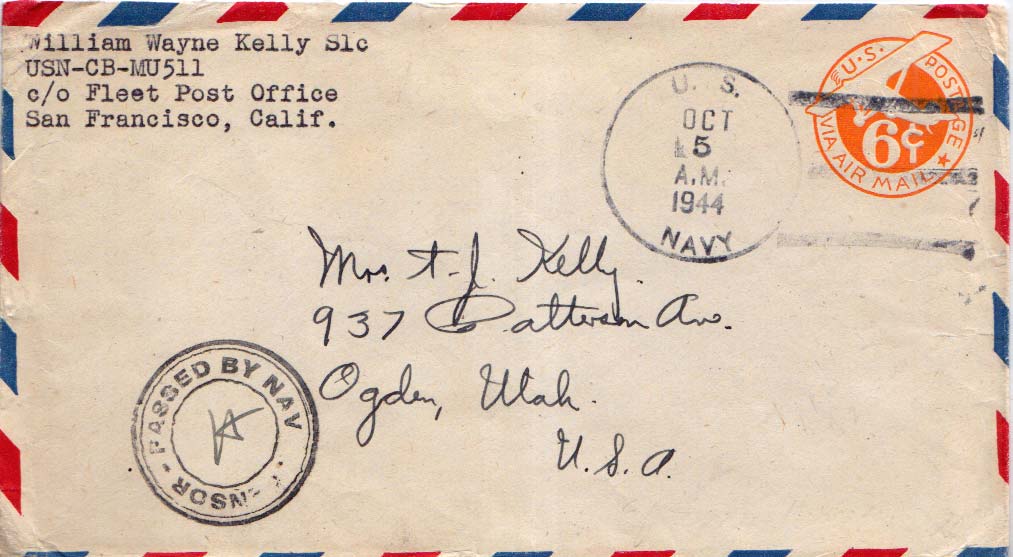 William Wayne Kelly Slc
USN-CB-MU511
c/o Fleet Post Office
San Francisco, Calif.
U. S.
OCT
5
A.M.
1944
NAVY
U.S. POSTAGE
6¢
VIA AIR MAIL
Mrs. T. J. Kelly
937 Patterson Ave.
Ogden, Utah.
U. S. A.
PASSED BY NAV